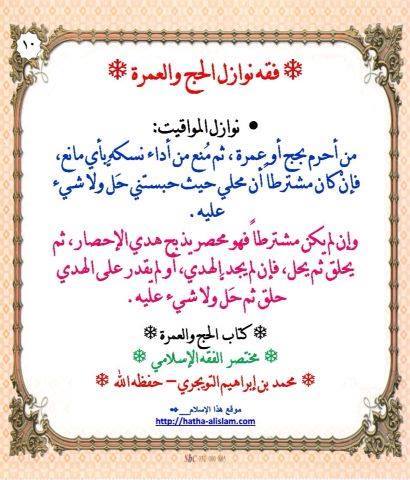 ١٠
❄ فقه نوازل الحج والعمرة ❄
● نوازل المواقيت:
من أحرم بحج أو عمرة ، ثم مُنع من أداء نسكه بأي مانع،
فإنْ كان مشترطاً أن محلي حيث حبستني حَل ولا شيء
عليه .
وإن لم يكن مشترطاً فهو محصر يذبح هدي الإحصار، ثم
يحلق ثم يحل، فإن لم يجد الهدي، أو لم يقدر على الهدي
حلق ثم حَل ولا شيء عليه .
❄ كتاب الحج والعمرة ❄
❄ مختصر الفقه الإسلامي ❄
❄ محمد بن إبراهيم التويجري – حفظه الله ❄
موقع هذا الإسلام__➻
http://hatha-alislam.com